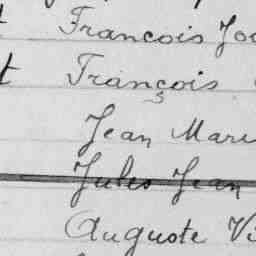 t Francois Jo
t François
Jean Mari
Jules Jean
Auguste Vi